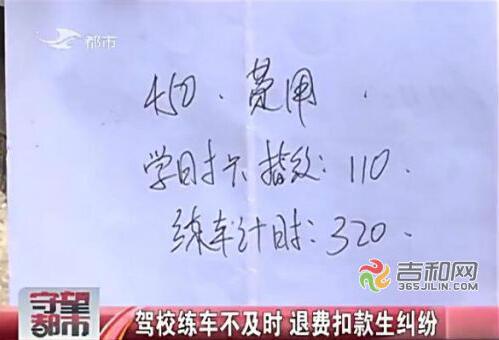 都市
450. 费用.
学时卡 指纹: 110.
练车计时: 320.
吉和网
365JILIN.COM
守望
都市
驾校练车不及时 退费扣款生纠纷